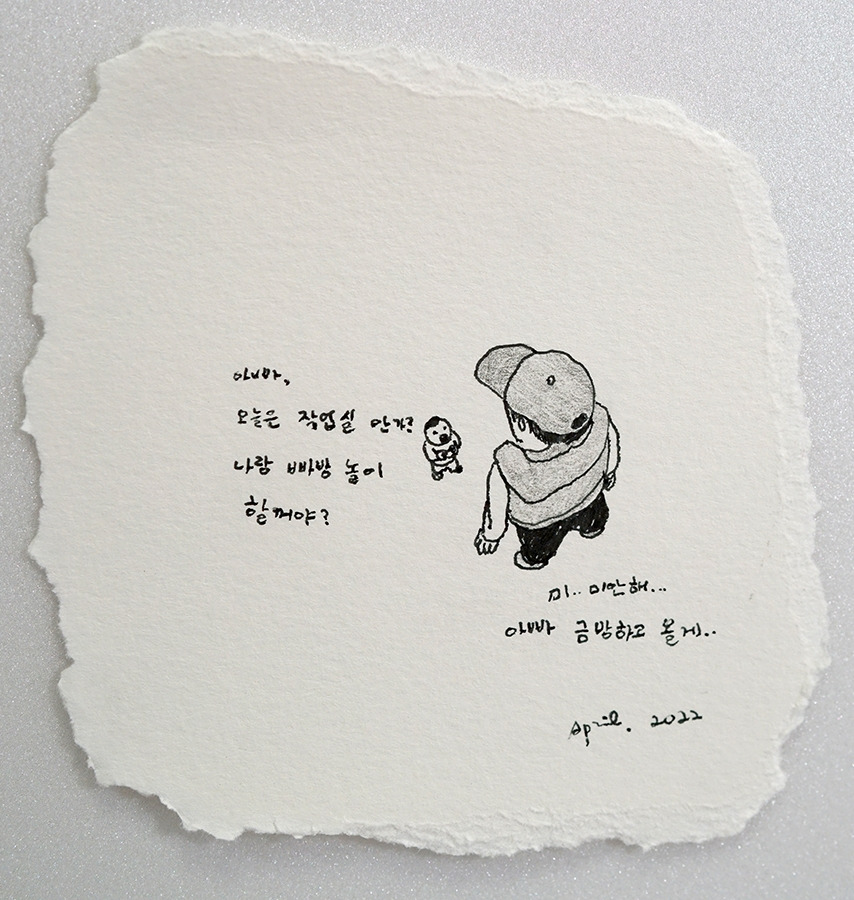 아빠,
오늘은 작업실 안가?
나랑 빠방 놀이
할꺼야?
미.. 미안해...
아빠 금방하고 올게..
April. 2022